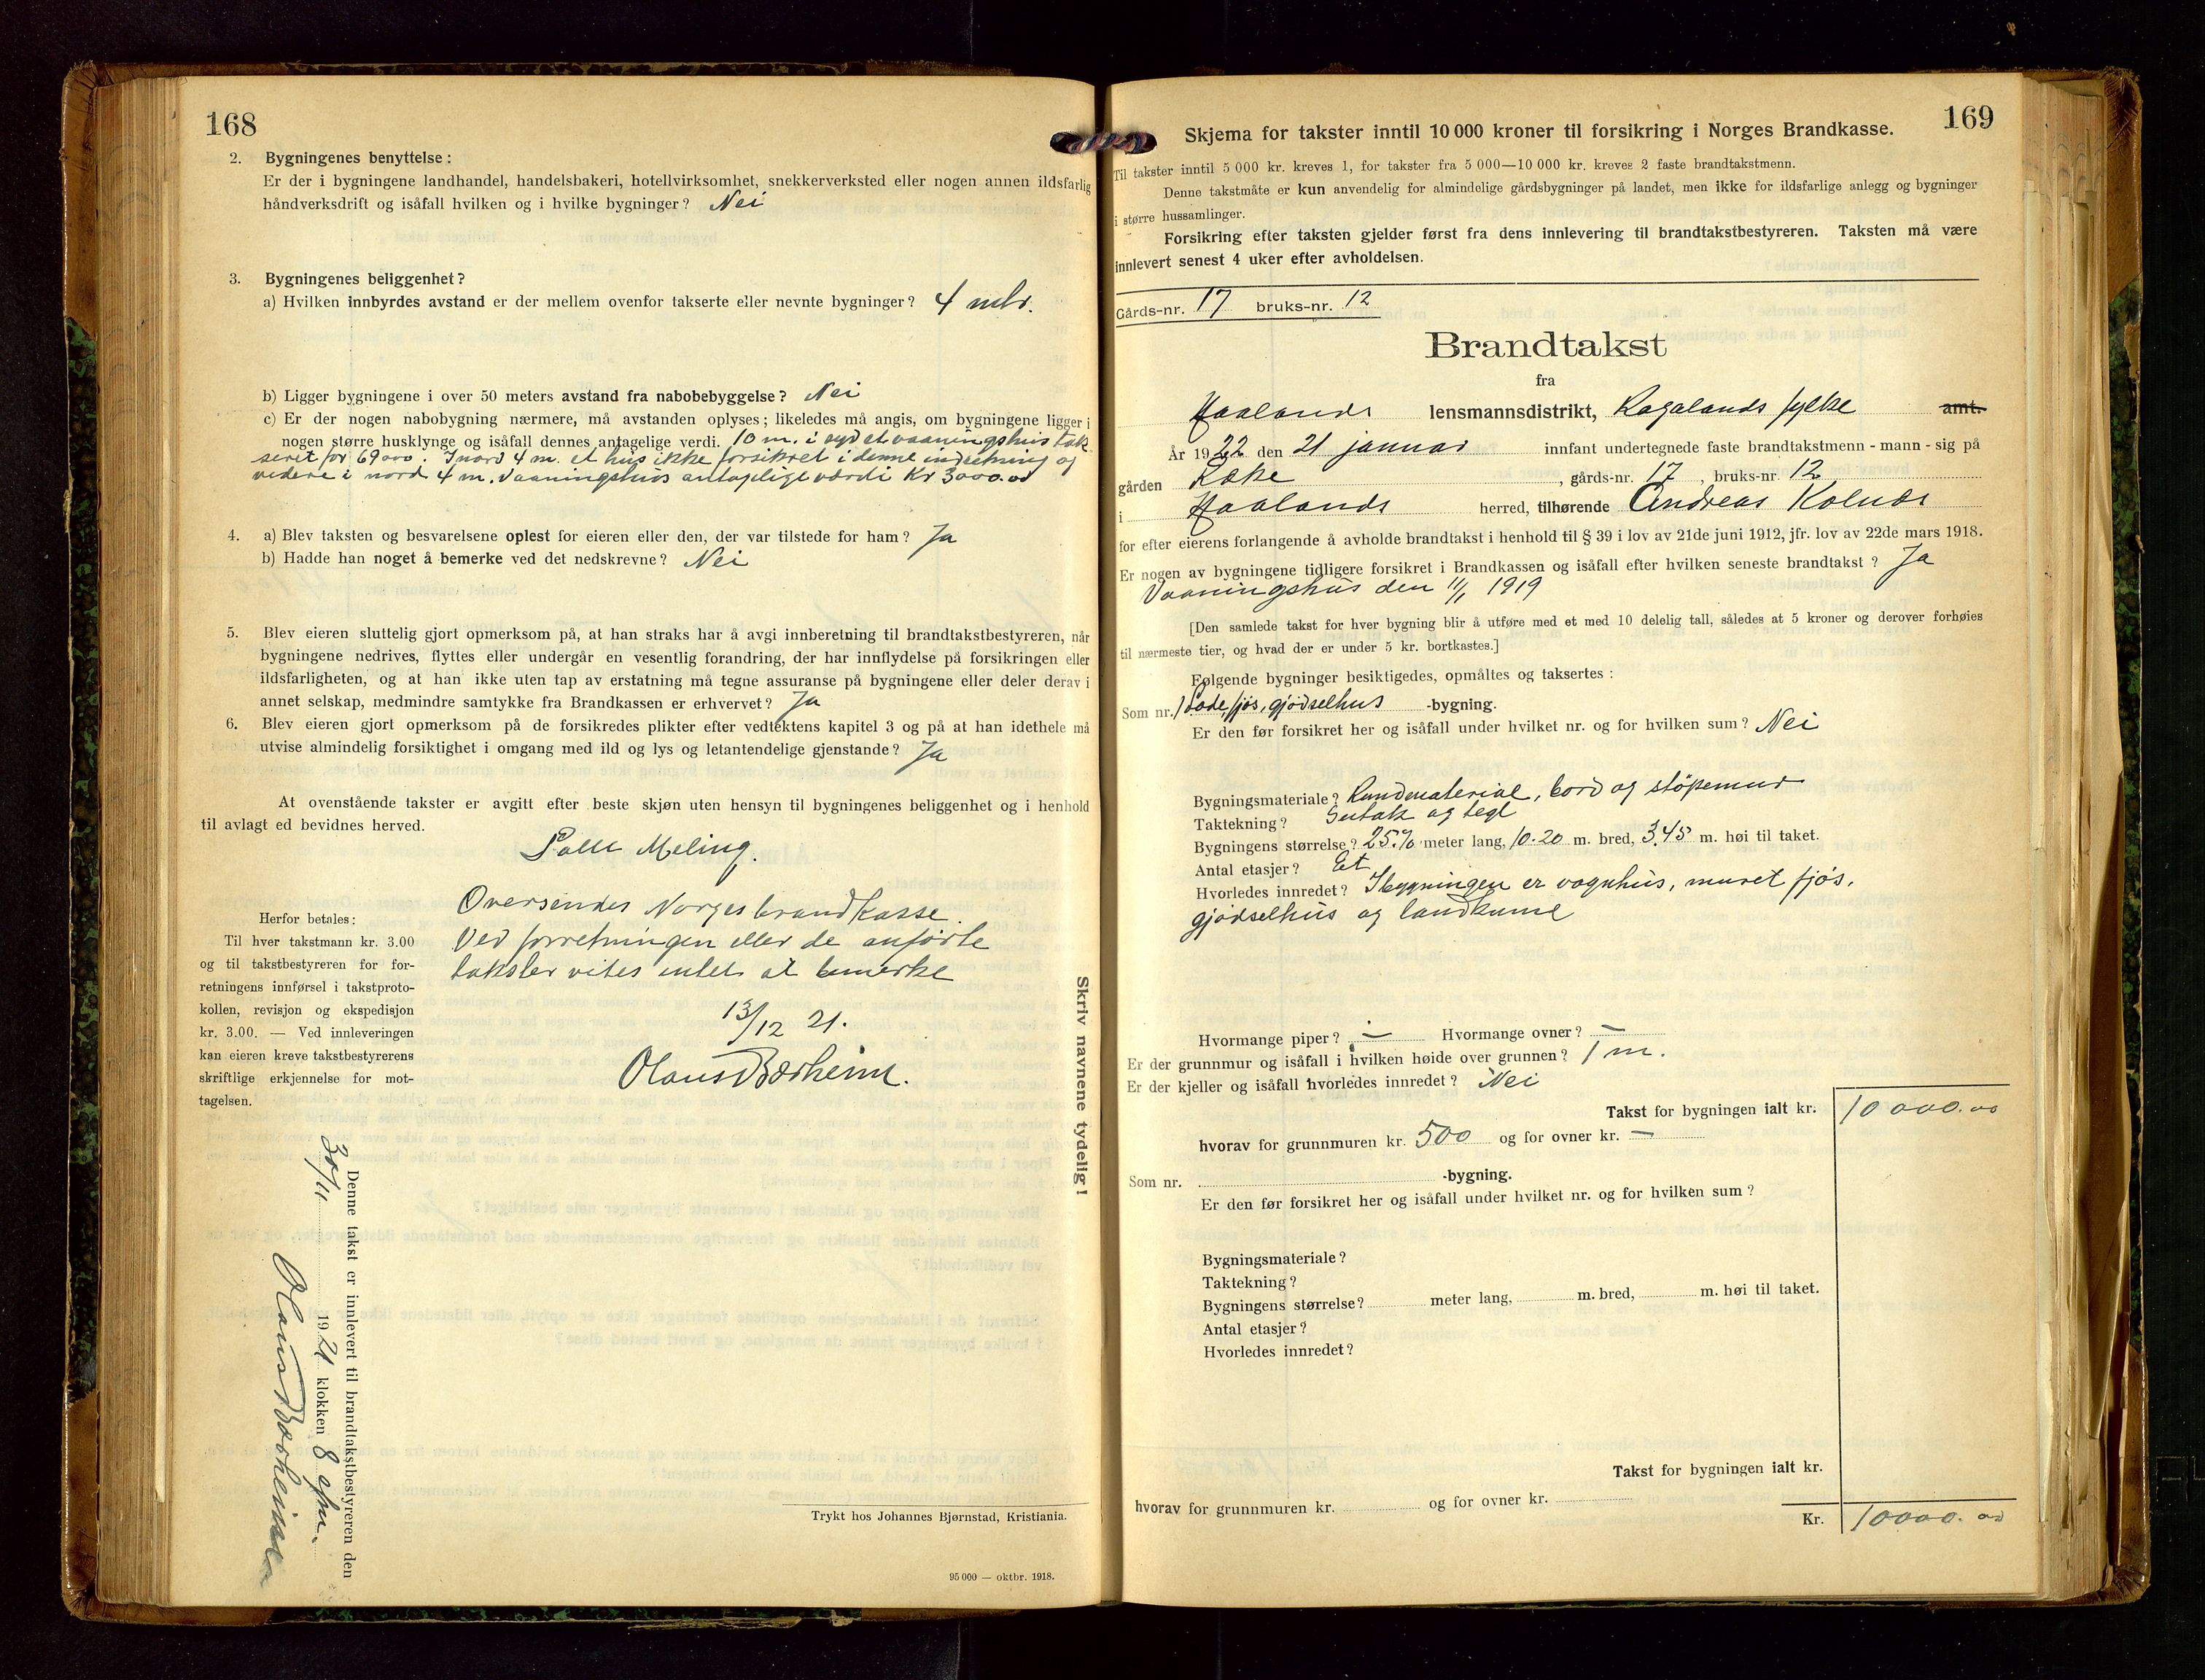 168
2. Bygningenes benyttelse:
Er der i bygningene landhandel, handelsbakeri, hotellvirksomhet, snekkerverksted eller nogen annen ildsfarlig
håndverksdrift og isåfall hvilken og i hvilke bygninger? Nei
3. Bygningenes beliggenhet?
a) Hvilken innbyrdes avstand er der mellem ovenfor takserte eller nevnte bygninger? 4 mtr.
b) Ligger bygningene i over 50 meters avstand fra nabobebyggelse? Nei
c) Er der nogen nabobygning nærmere, må avstanden oplyses; likeledes må angis, om bygningene ligger i
nogen større husklynge og isåfall dennes antagelige verdi. 10 m. i syd et vaaningshus tak
seret for 69000. I nord 4 m. et hus ikke forsikret i denne indretning og
videre i nord 4 m. Vaaningshus antagelige værdi Kr 3000.00
4. a) Blev taksten og besvarelsene oplest for eieren eller den, der var tilstede for ham? Ja
b) Hadde han noget å bemerke ved det nedskrevne? Nei
5. Blev eieren sluttelig gjort opmerksom på, at han straks har å avgi innberetning til brandtakstbestyreren, når
bygningene nedrives, flyttes eller undergår en vesentlig forandring, der har innflydelse på forsikringen eller
ildsfarligheten, og at han ikke uten tap av erstatning må tegne assuranse på bygningene eller deler derav i
annet selskap, medmindre samtykke fra Brandkassen er erhvervet? Ja
6. Blev eieren gjort opmerksom på de forsikredes plikter efter vedtektens kapitel 3 og på at han idethele må
utvise almindelig forsiktighet i omgang med ild og lys og letantendelige gjenstande? Ja
At ovenstående takster er avgitt efter beste skjøn uten hensyn til bygningenes beliggenhet og i henhold
til avlagt ed bevidnes herved.
Palle Meling.
Oversendes Norges brandkasse.
Ved forretningen eller de anførte
takster vites intet at bemerke
13/12 21.
Olaus Bærheim.
Herfor betales:
Til hver takstmann kr. 3.00
og til takstbestyreren for for-
retningens innførsel i takstproto-
kollen, revisjon og ekspedisjon
kr. 3.00. — Ved innleveringen
kan eieren kreve takstbestyrerens
skriftlige erkjennelse for mot-
tagelsen.
Skriv navnene tydelig!
Denne takst er innlevert til brandtakstbestyreren den
30/11 1921 klokken 8 efm.
Olaus Bærheim
Trykt hos Johannes Bjørnstad, Kristiania.
95 000 — oktbr. 1918.
169
Skjema for takster inntil 10 000 kroner til forsikring i Norges Brandkasse.
Til takster inntil 5 000 kr. kreves 1, for takster fra 5 000—10 000 kr. kreves 2 faste brandtakstmenn.
Denne takstmåte er kun anvendelig for almindelige gårdsbygninger på landet, men ikke for ildsfarlige anlegg og bygninger
i større hussamlinger.
Forsikring efter taksten gjelder først fra dens innlevering til brandtakstbestyreren. Taksten må være
innlevert senest 4 uker efter avholdelsen.
Gårds-nr. 17 bruks-nr. 12
Brandtakst
fra
Haalands lensmannsdistrikt, Rogalands fylke amt.
År 1922 den 21 januar innfant undertegnede faste brandtakstmenn - mann - sig på
gården Ræke, gårds-nr. 17, bruks-nr. 12
i Haalands herred, tilhørende Andreas Kolnes
for efter eierens forlangende å avholde brandtakst i henhold til § 39 i lov av 21de juni 1912, jfr. lov av 22de mars 1918.
Er nogen av bygningene tidligere forsikret i Brandkassen og isåfall efter hvilken seneste brandtakst? Ja
Vaaningshus den 11/1 1919
[Den samlede takst for hver bygning blir å utføre med et med 10 delelig tall, således at 5 kroner og derover forhøies
til nærmeste tier, og hvad der er under 5 kr. bortkastes.]
Følgende bygninger besiktigedes, opmåltes og taksertes:
Som nr. 1 Lade, fjøs, gjødselhus -bygning.
Er den før forsikret her og isåfall under hvilket nr. og for hvilken sum? Nei
Bygningsmateriale? Rundmaterial, bord og støpemur
Taktekning? Sutak og tegl
Bygningens størrelse? 25.70 meter lang, 10.20 m. bred, 3.45 m. høi til taket.
Antal etasjer? Et
Hvorledes innredet? I bygningen er vognhus, muret fjøs,
gjødselhus og landkume
Hvormange piper? — Hvormange ovner? —
Er der grunnmur og isåfall i hvilken høide over grunnen? 1 m.
Er der kjeller og isåfall hvorledes innredet? Nei
Takst for bygningen ialt kr. 10000.00
hvorav for grunnmuren kr. 500 og for ovner kr. —
Som nr. -bygning.
Er den før forsikret her og isåfall under hvilket nr. og for hvilken sum?
Bygningsmateriale?
Taktekning?
Bygningens størrelse? meter lang, m. bred, m. høi til taket.
Antal etasjer?
Hvorledes innredet?
Takst for bygningen ialt kr.
hvorav for grunnmuren kr. og for ovner kr.
Kr. 10000.00